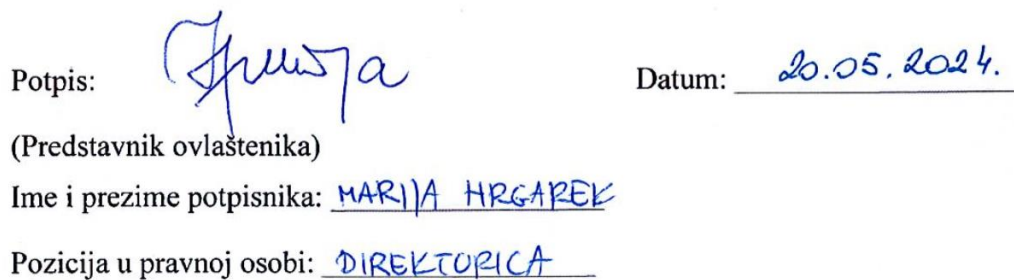 Potpis: Datum: 20.05.2024.
(Predstavnik ovlaštenika)
Ime i prezime potpisnika: MARIJA HRGAREK
Pozicija u pravnoj osobi: DIREKTORICA